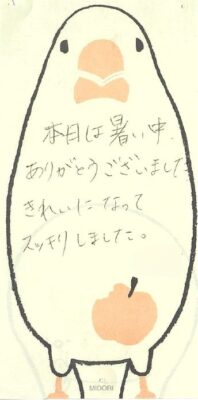 本日は暑い中、
ありがとうございました
きれいになって
スッキリしました。
MIDORI